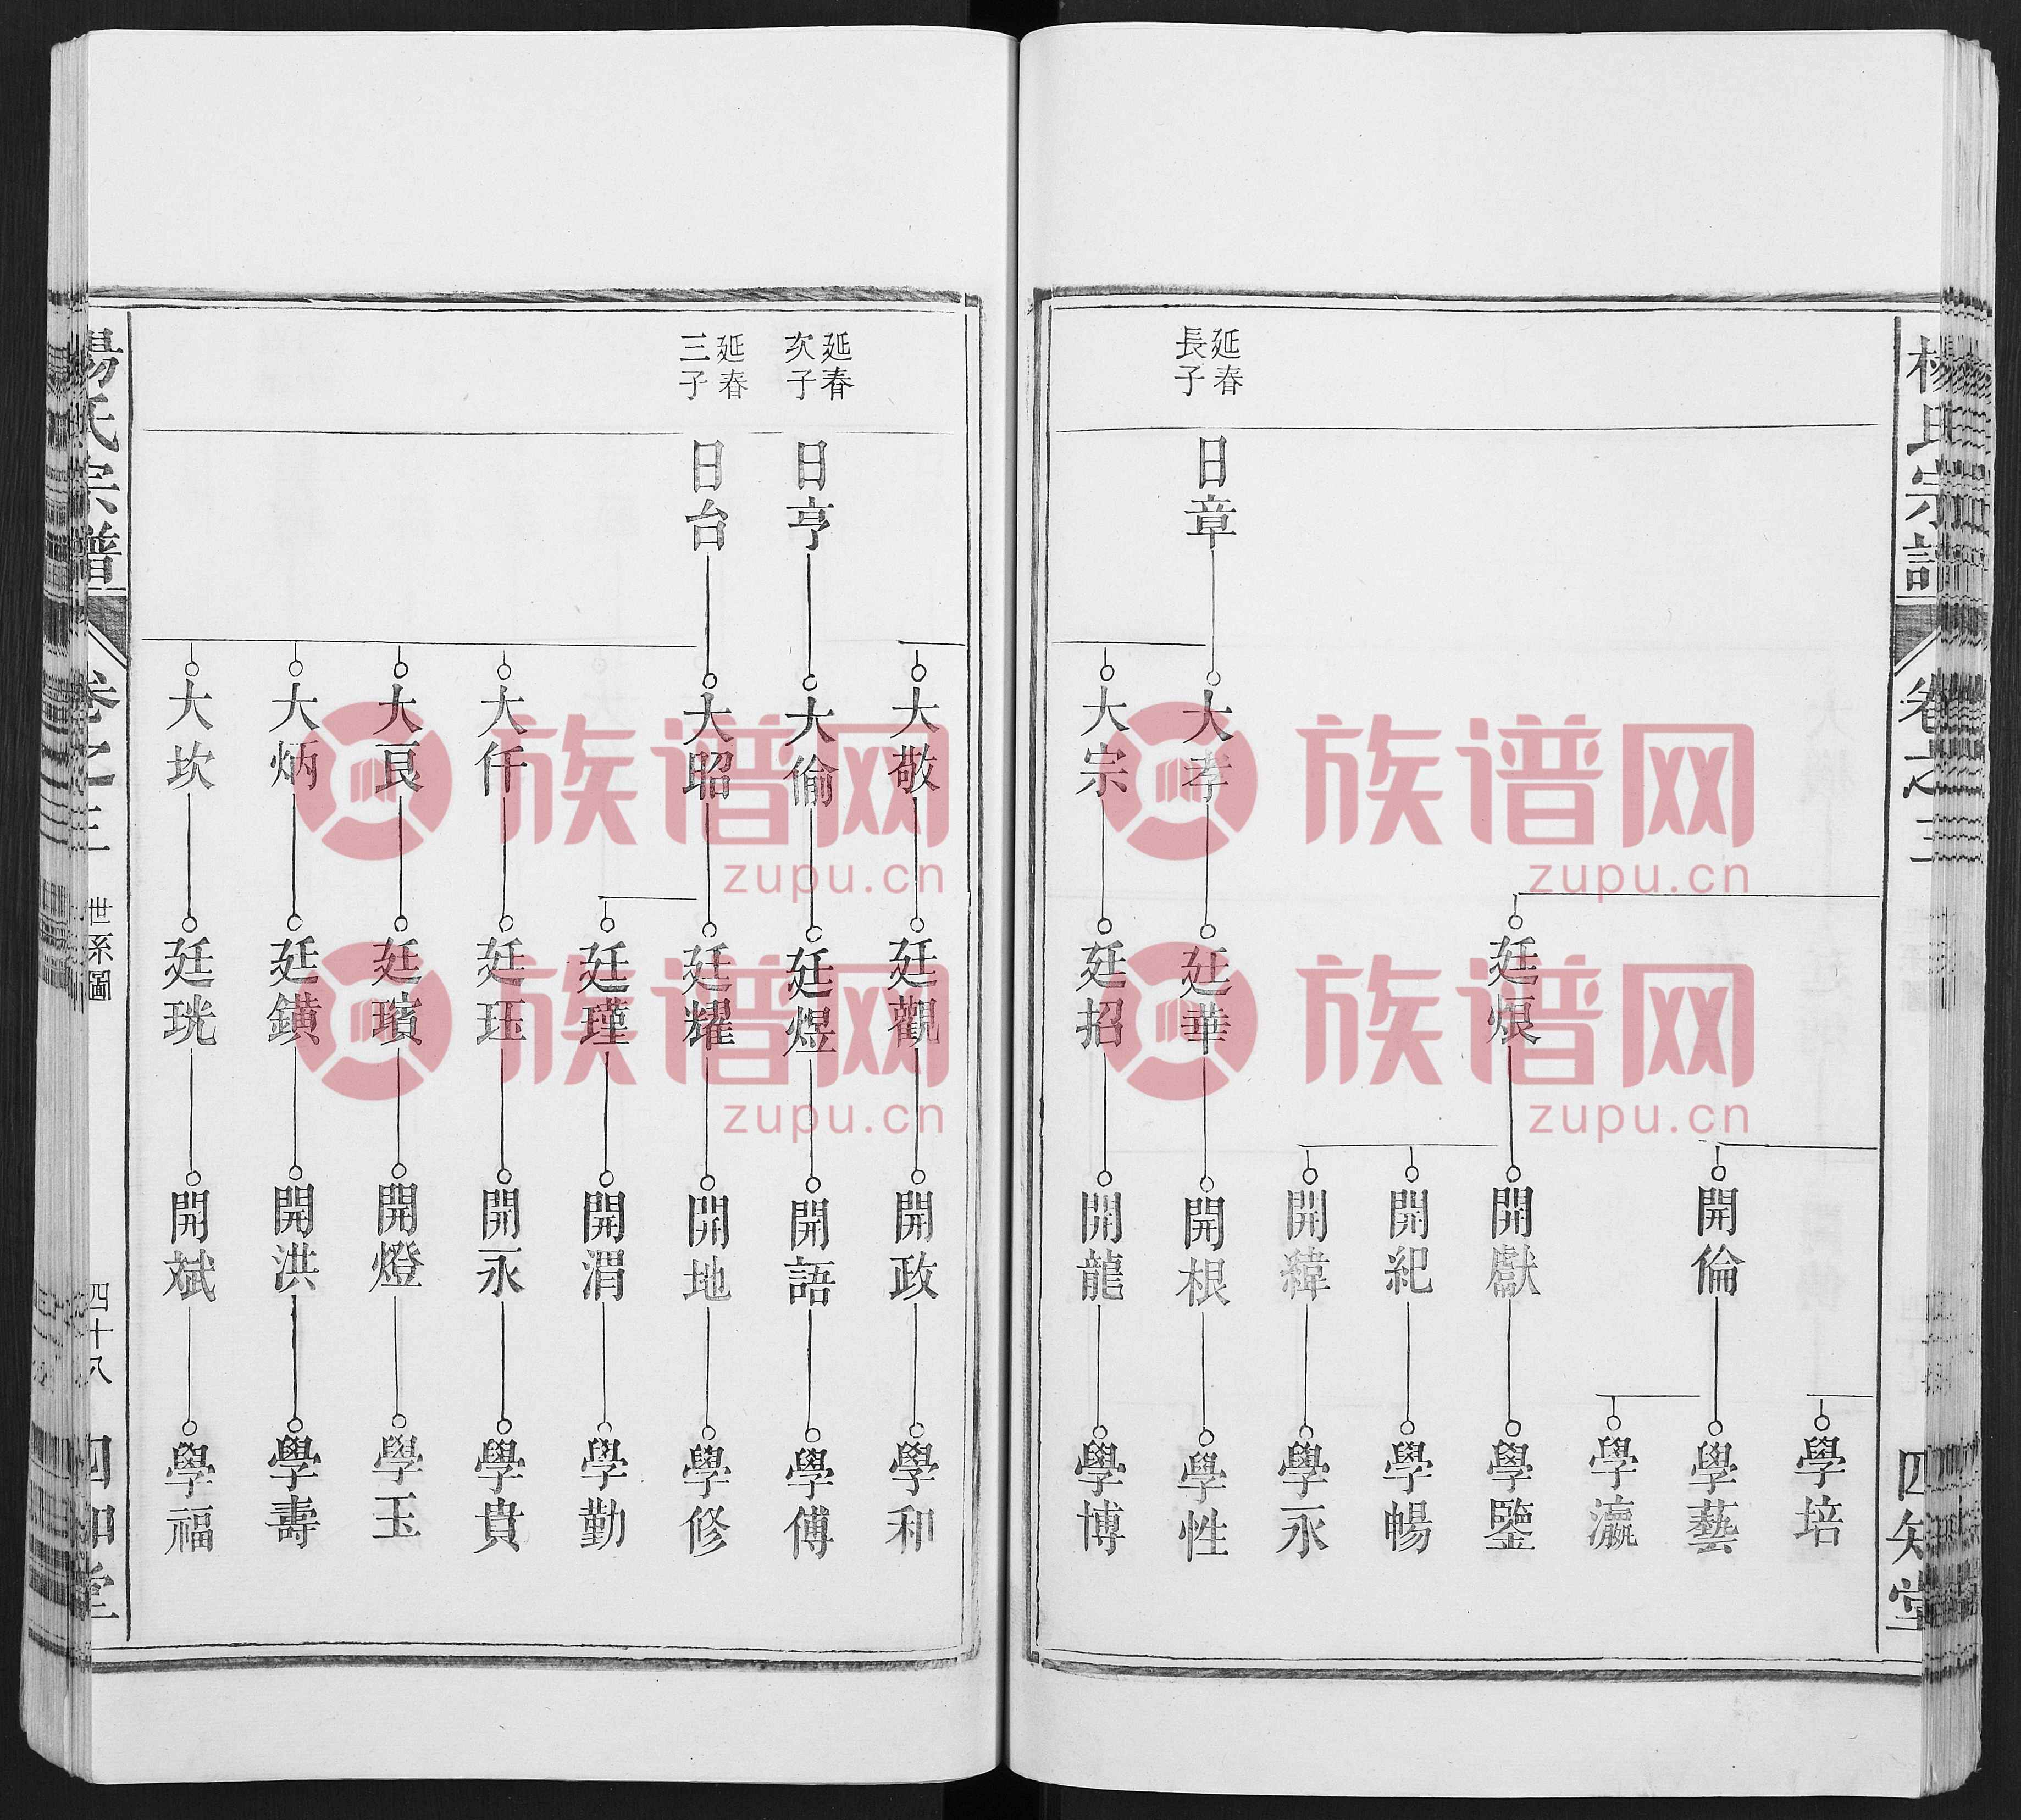 楊氏宗譜
卷之三
四知堂
學培
開倫
學藝
學瀛
廷烺
開獻
學鑒
開紀
學暢
開緯
學永
延春
長子
日章
大孝
廷華
開根
學性
大宗
廷招
開龍
學博
大敬
廷觀
開政
學和
延春
次子
日亨
大倫
廷煜
開語
學傅
延春
三子
日台
大昭
廷耀
開地
學修
廷瑾
開渭
學勤
大仟
廷珏
開永
學貴
大艮
廷璸
開燈
學玉
大炳
廷鐄
開洪
學壽
大坎
廷珖
開斌
學福
楊氏宗譜
卷之三
世系圖
四十八
四知堂
族谱网
zupu.cn
族谱网
zupu.cn
族谱网
zupu.cn
族谱网
zupu.cn